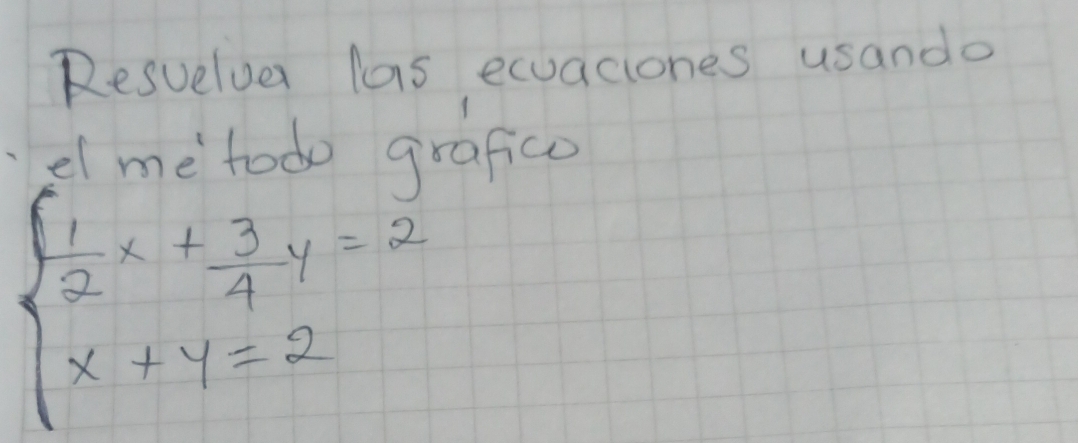 Resuelver las ecuaciones usando
el método gráfico
1/2 x + 3/4 y = 2
x + y = 2